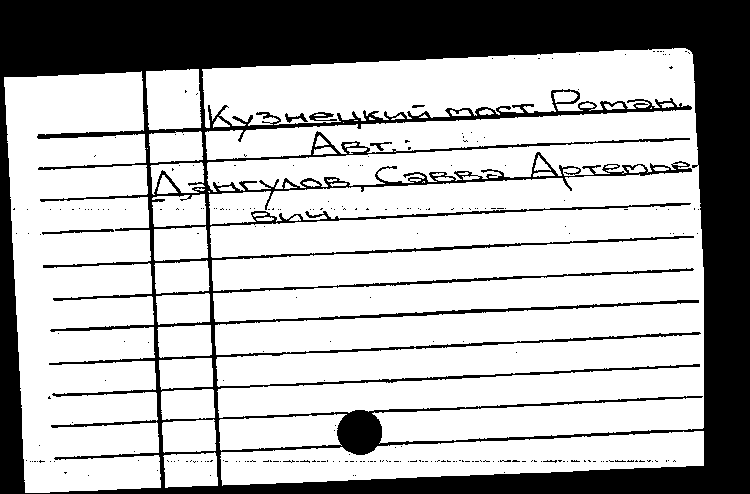 Кузнецкий мост. Роман.
Авт.:
Дангулов, Савва Артемье-
вич.